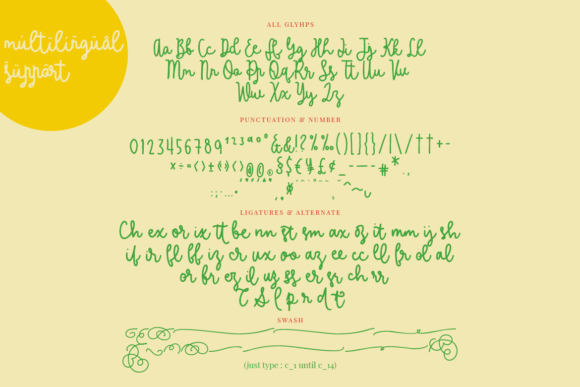 mùltilingùâl
šüppört
ALL GLYHPS
Aa Bb Cc Dd Ee Ff Gg Hh Ii Jj Kk Ll
Mm Nn Oo Pp Qq Rr Ss Tt Uu Vv
Ww Xx Yy Zz
PUNCTUATION & NUMBER
0123456789¹²³ªº°&&!?%‰()[]{}/|\/††+-
×÷=<>±«»‹›@©®§$€¥£¢_-–—#*.,
:;·...•
LIGATURES & ALTERNATE
Ch ex or ix tt be nn st sm ax oz it mm ij sh
if ir fl ff iz cr ux oo az ee cc ll fr cl al
or br ez il us ss er sr ch rr
T S l p r d t
SWASH
(just type : c_1 until c_14)